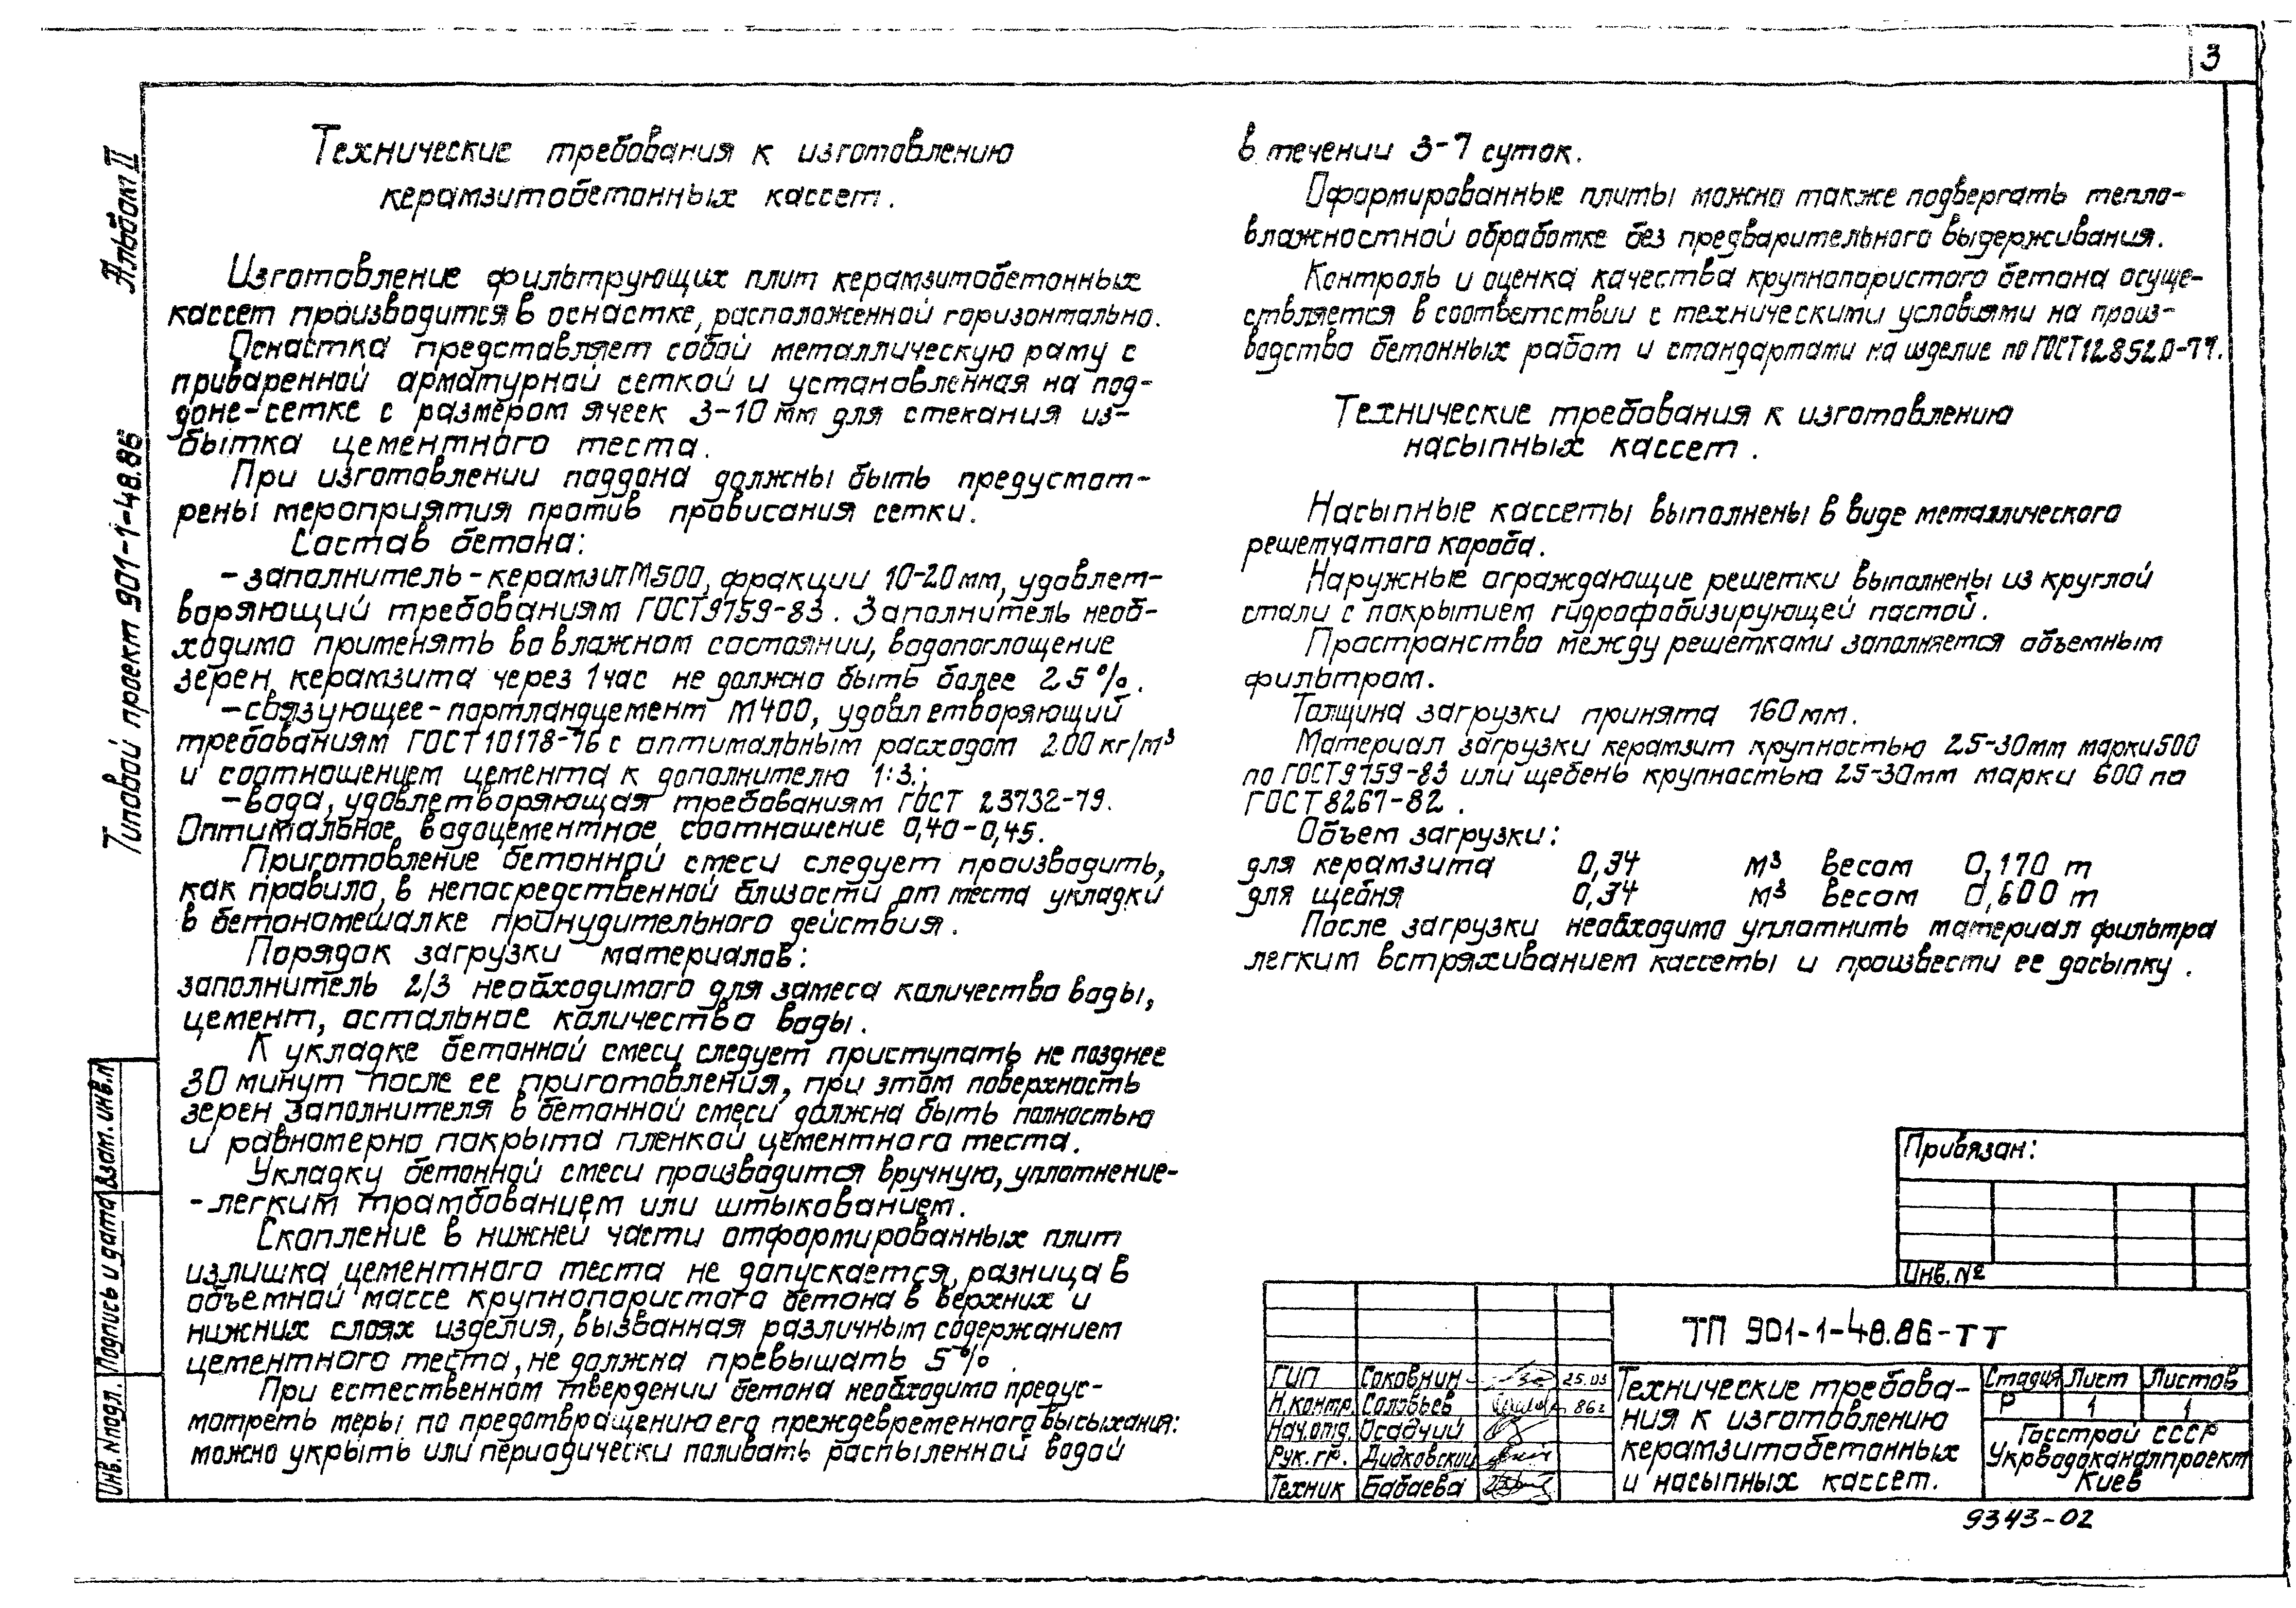 3
Альбом II
Типовой проект 901-1-48.86
Технические требования к изготовлению
керамзитобетонных кассет.
Изготовление фильтрующих плит керамзитобетонных
кассет производится в оснастке, расположенной горизонтально.
Оснастка представляет собой металлическую раму с
приваренной арматурной сеткой и установленная на под-
доне-сетке с размером ячеек 3-10 мм для стекания из-
бытка цементного теста.
При изготовлении поддона должны быть предусмот-
рены мероприятия против провисания сетки.
Состав бетона:
-заполнитель-керамзит М500, фракции 10-20мм, удовлет-
воряющий требованиям ГОСТ 9759-83. Заполнитель необ-
ходимо применять во влажном состоянии, водопоглощение
зерен керамзита через 1 час не должно быть более 25%.
-связующее-портландцемент М400, удовлетворяющий
требованиям ГОСТ 10178-76 с оптимальным расходом 200 кг/м³
и соотношением цемента к дополнителю 1:3.;
-вода, удовлетворяющая требованиям ГОСТ 23732-79.
Оптимальное водоцементное соотношение 0,40-0,45.
Приготовление бетонной смеси следует производить,
как правило, в непосредственной близости от места укладки
в бетономешалке принудительного действия.
Порядок загрузки материалов:
заполнитель 2/3 необходимого для замеса количества воды,
цемент, остальное количество воды.
К укладке бетонной смеси следует приступать не позднее
30 минут после ее приготовления, при этом поверхность
зерен заполнителя в бетонной смеси должна быть полностью
и равномерно покрыта пленкой цементного теста.
Укладку бетонной смеси производится вручную, уплотнение-
-легким трамбованием или штыкованием.
Скопление в нижней части отформированных плит
излишка цементного теста не допускается, разница в
объемной массе крупнопористого бетона в верхних и
нижних слоях изделия, вызванная различным содержанием
цементного теста, не должна превышать 5%.
При естественном твердении бетона необходимо предус-
мотреть меры по предотвращению его преждевременного высыхания:
можно укрыть или периодически поливать распыленной водой
в течении 3-7 суток.
Оформированные плиты можно также подвергать тепло-
влажностной обработке без предварительного выдерживания.
Контроль и оценка качества крупнопористого бетона осуще-
ствляется в соответствии с техническими условиями на произ-
водство бетонных работ и стандартами на изделие по ГОСТ 12.852.0-77.
Технические требования к изготовлению
насыпных кассет.
Насыпные кассеты выполнены в виде металлического
решетчатого короба.
Наружные ограждающие решетки выполнены из круглой
стали с покрытием гидрофобизирующей пастой.
Пространство между решетками заполняется объемным
фильтром.
Толщина загрузки принята 160мм.
Материал загрузки керамзит крупностью 25-30мм марки 500
по ГОСТ 9759-83 или щебень крупностью 25-30мм марки 600 по
ГОСТ 8267-82.
Объем загрузки:
для керамзита 0,34 м³ весом 0,170 т
для щебня 0,34 м³ весом 0,600 т
После загрузки необходимо уплотнить материал фильтра
легким встряхиванием кассеты и произвести ее досыпку.
Взам. инв. N
Подпись и дата
Инв. N подл.
Привязан:
Инв. №
ТП 901-1-48.86-ТТ
ГИП Соковнин 25.03
Н.контр. Соловьев 86г
Нач.отд. Осадчий
Рук.гр. Дидковский
Техник Бабаева
Технические требова-
ния к изготовлению
керамзитобетонных
и насыпных кассет.
Стадия Лист Листов
Р 1 1
Госстрой СССР
Укрводоканалпроект
Киев
9343-02